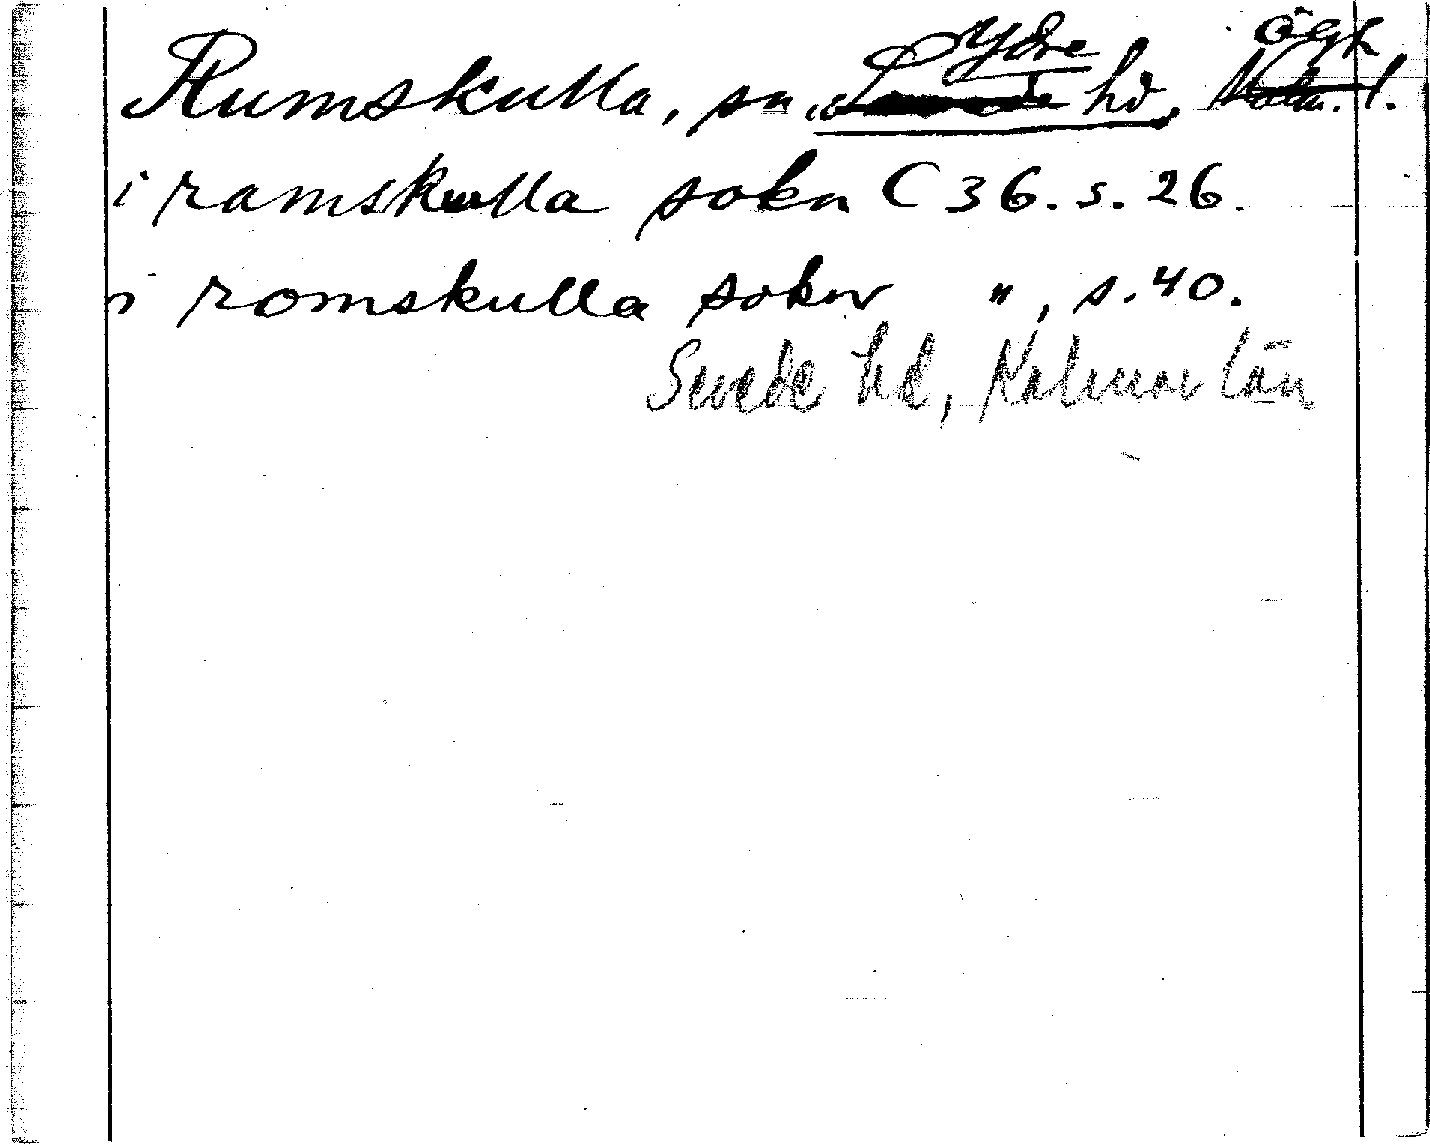 Ydre Ögl.
Rumskulla, sn, hd, Kalm. l.
i ramskulla sokn C 36. s. 26.
i romskulla sokn ", s. 40.
Sevede hd, Kalmar län